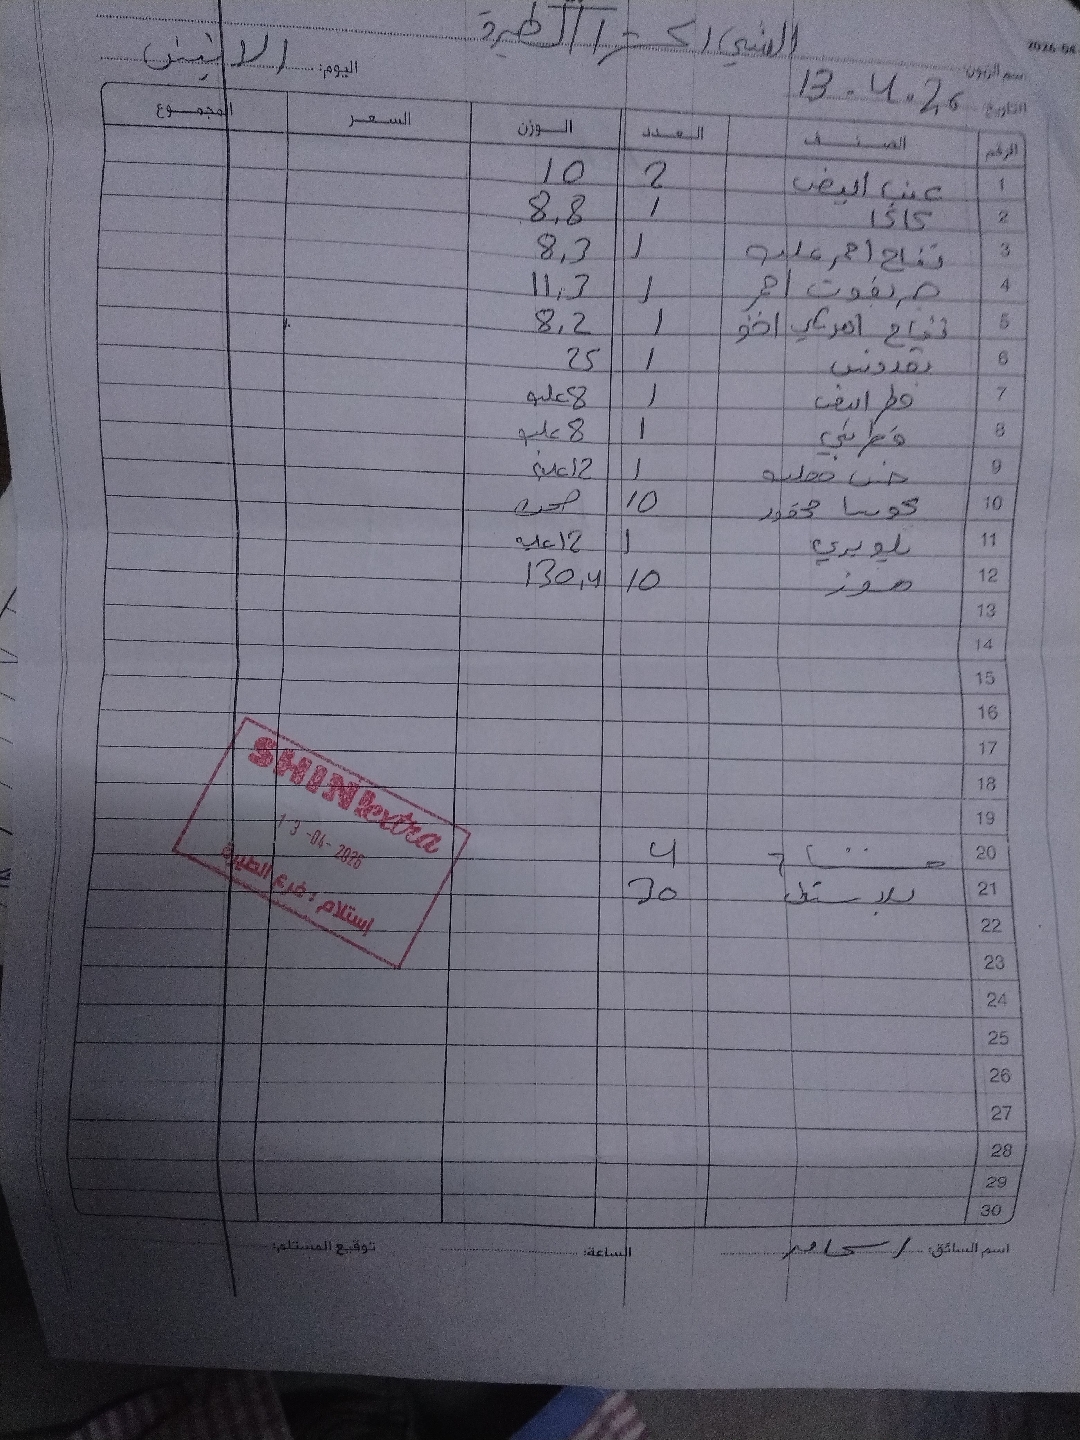 الشيني اكسترا الطيرة
2026-04
اسم الزبون:
التاريخ: 13-4-26 اليوم: الاثنين
الرقم الصنف العدد الوزن السعر المجموع
1 عنب ابيض 2 10
2 كاكا 1 8,8
3 تفاح احمر علبه 1 8,3
4 جريفوت احمر 1 11,3
5 تفاح اخضر 1 8,2
6 بقدونس 1 25
7 فطر ابيض 1 8 علبه
8 فطر بني 1 8 علبه
9 خس 1 12 علبه
10 كوسا محفور 10 صحن
11 بلوبري 1 12 علبه
12 موز 10 130,4
13
14
15
16
17
18
19
20 مشتاح 4
21 بلاستيك 30
22
23
24
25
26
27
28
29
30
SHINextra
13-04-2026
إستلام: فرع الطيرة
اسم السائق: الساعة: توقيع المستلم: